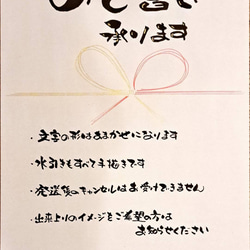 のし書き
承ります
・文字の形はおまかせになります
・水引きもすべて手描きです
・発送後のキャンセルはお受けできません
・出来上りのイメージをご希望の方は
お知らせください